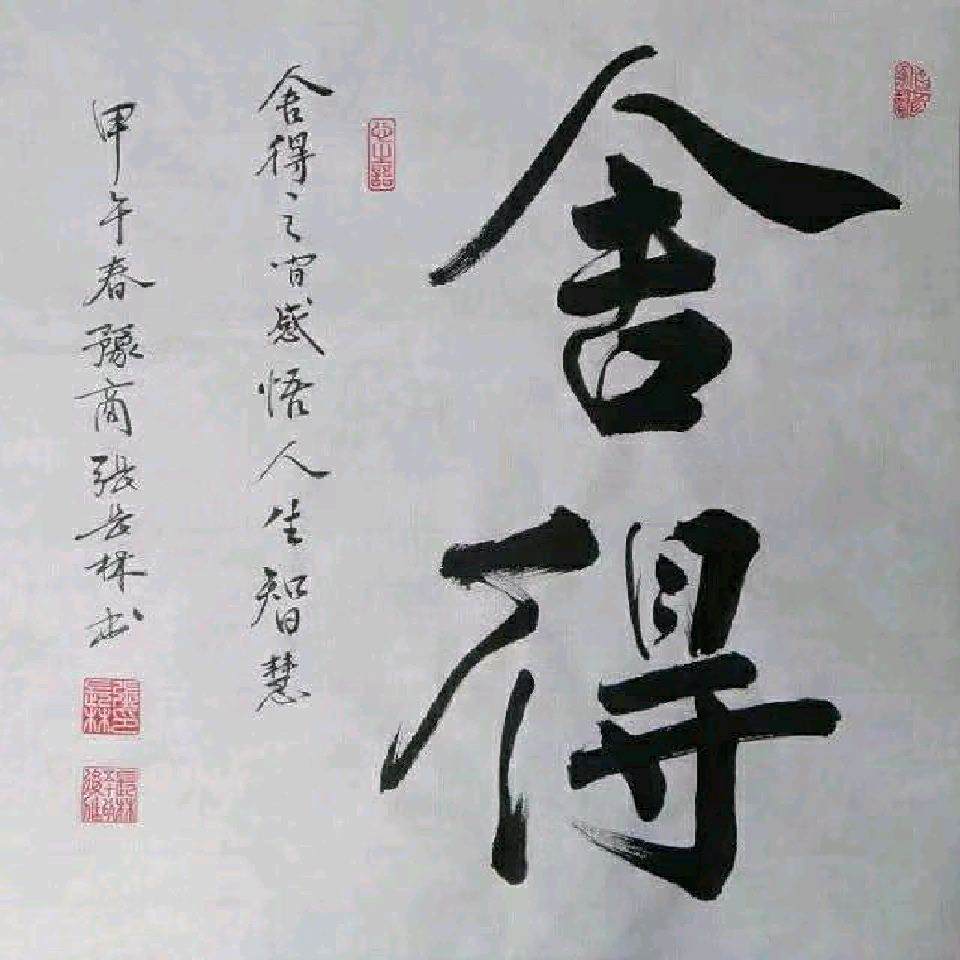 舍得
舍得之间感悟人生智慧
甲午春豫商张长林书
张长林印